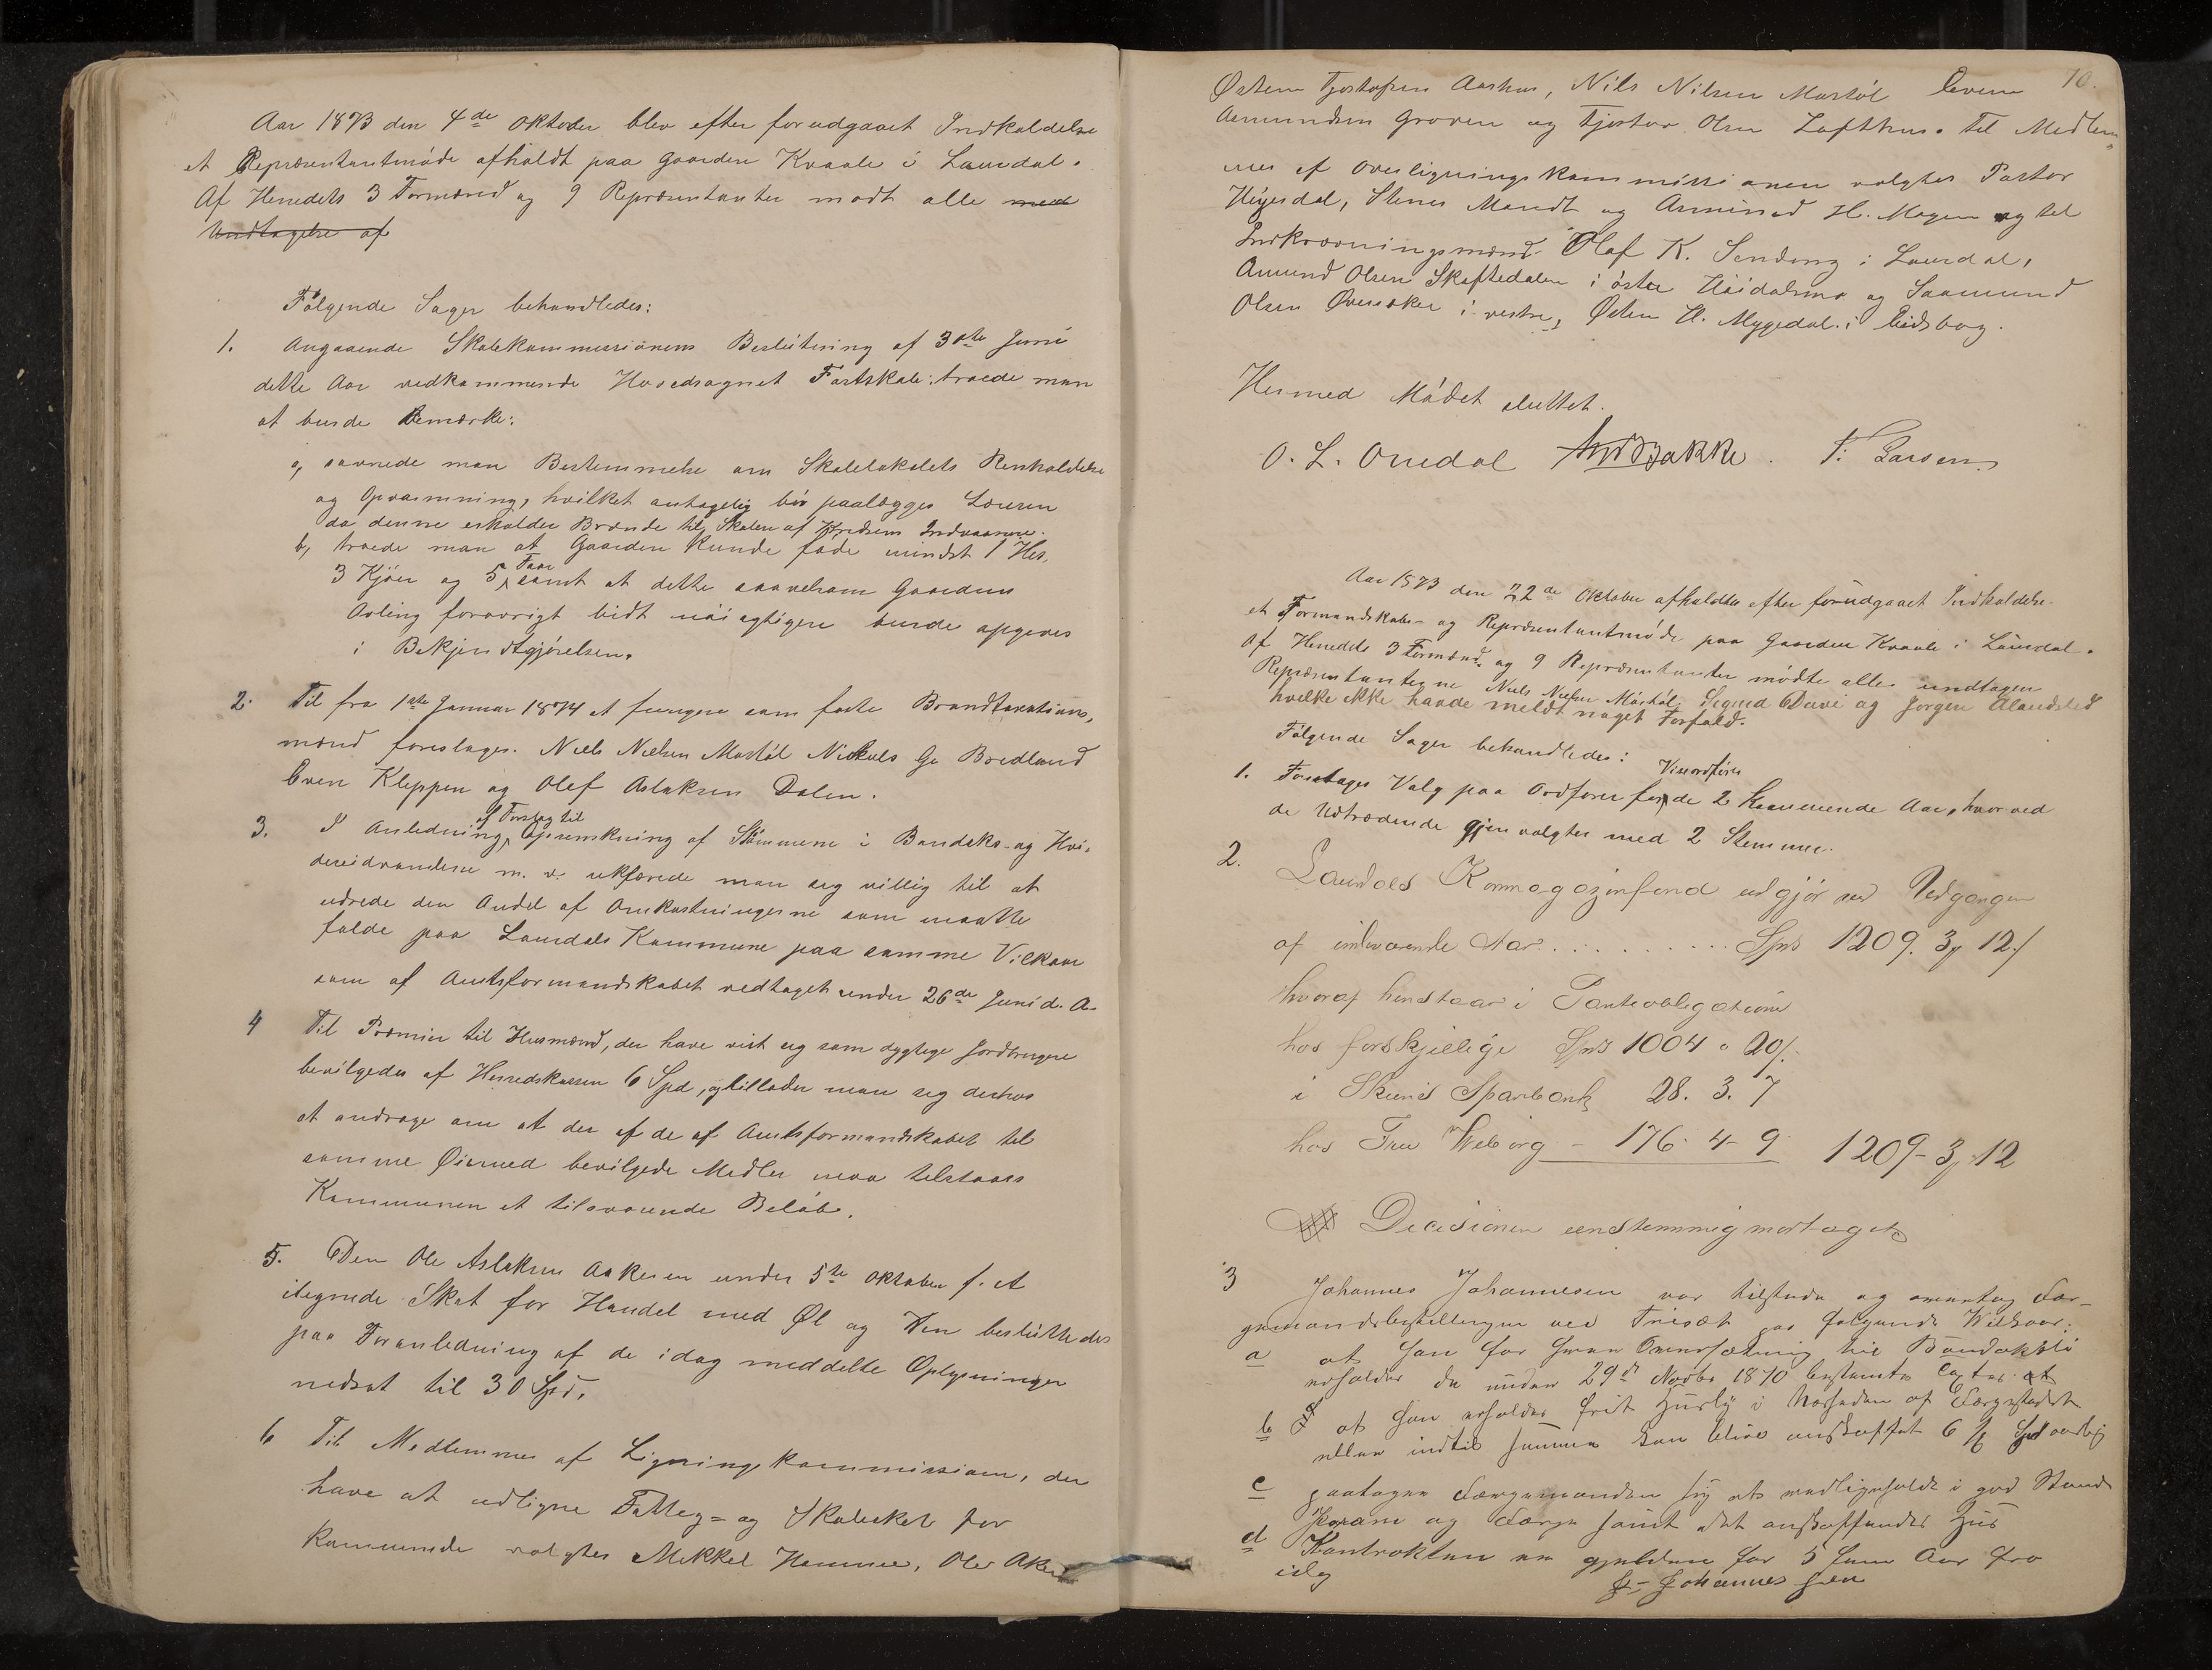 Aar 1873 den 4de Oktober blev efter forudgaaet Indkaldelse
et Repræsentantmøde afholdt paa Gaarden Kvaale i Laurdal.
Af Herredets 3 Formænd og 9 Repræsentanter mødt alle med
Undtagelse af
Følgende Sager behandledes:
1. Angaaende Skolekommissionens Beslutning af 30te Juni
dette Aar vedkommende Hovedsognet Fastskole: troede man
at burde Bemærke:
a, savnede man Bestemmelse om Skolelokalets Renholdelse
og Opvarmning, hvilket antagelig bør paalægges Læreren
da denne erholder Brænde til Skolen af Kredsens Indvaanere.
b, troede man at Gaarden kunde føde mindst 1 Hest,
3 Kjør og 5 Faar samt at dette saavelsom Gaardens
Avling forøvrigt lidt nøiagtigere burde opgives
i Bekjendtgjørelsen.
2. Til fra 1ste Januar 1874 at fungere som faste Brandtaxations-
mænd foreslages. Niels Nielsen Mostøl Nickuls G. Bredland
Even Kleppen og Olef Aslaksen Dalen.
3. I Anledning af Forslag til Oprenskning af Strømmene i Bandaks- og Hvi-
deseidvandene m. v. erklærede man sig villig til at
udrede den Andel af Omkostningerne som maatte
falde paa Laurdals Kommune paa samme Vilkaar
som af Amtsformandskabet vedtaget under 26de Juni d. A.
4 Til Præmier til Husmænd, der have vist sig som dygtige Jordbrugere
bevilgedes af Herredskassen 6 Spd, og tillader man sig derhos
at andrage om at der af de af Amtsformandskabet til
samme Øiemed bevilgede Midler maa tilstaaes
Kommunen et tilsvarende Beløb.
5. Den Ole Aslaksen Aakeren under 5te Oktober f. A
ilignede Skat for Handel med Øl og Vin besluttedes
paa Foranledning af de idag meddelte Oplysninger
nedsat til 30 Spd.
6 Til Medlemmer af Ligningskommissionen, der
have at udligne Fattig- og Skoleskat for
Kommende valgtes Mikkel Hommee, Ole Aker
70.
Østen Tjostofsen Aashus, Nils Nilsen Mostøl Even
Aamundsen Groven og Tjostov Olsen Lofthus. Til Medlem-
mer af Overligningskommissionen valgtes Pastor
Heyerdal, Stener Mandt og Asmund H. Mogen og til
Indkrævningsmænd Olaf K. Sundong i Laurdal,
Amund Olsen Skaftedalen i østre Høidalsmo og Saamund
Olsen Øveraker i vestre, Østen H. Mygedal i Eidsborg.
Hermed Mødet sluttet.
O. L. Ouedal And Bakke. T. Larsen
Aar 1873 den 22de Oktober afholdtes efter forudgaaet Indkaldelse
et Formandskabs- og Repræsentantmøde paa Gaarden Kvaale i Laurdal.
Af Herredets 3 Formænd og 9 Repræsentanter mødte alle undtagen
Repræsentanterne Niels Nielsen Mostøl, Sigurd Duvi og Jørgen Alandslid
hvilke ikke havde meldt noget Forfald.
Følgende Sager behandledes:
1. Foretages Valg paa Ordfører Viceordfører for de 2 kommende Aar, hvorved
de Udtrædende gjenvalgtes med 2 Stemmer.
2. Laurdals Kornmagazinfond udgjør ved Udgangen
af indeværende Aar . . . . . . . . . . Spd 1209. 3, 12/
hvoraf henstaar i Panteobligationer
hos forskjellige Spd 1004 " 20/.
i Skiens Sparebank 28. 3. 7
hos Fru Weborg - 176. 4- 9 1209- 3, 12
Decisionen eenstemmig modtaget
3 Johannes Johannesen var tilstede og overtog Fær-
gemandsbestillingen ved Triset paa følgende Vilkaar:
a at han for hver Oversætning til Bandaksli
erholder de under 29de Novbr 1870 bestemte Taxter
b at han erholder frit Huusly i Nærheden af Færgestedet
eller indtil samme kan blive anskaffet 6 Spd aarlig
c paatager Færgemanden sig at vedligeholde i god Stand
Pram og Færge samt det anskaffende Hus
d Kontrakten er gjeldende for 5 fem Aar fra
idag
J- Johannessen